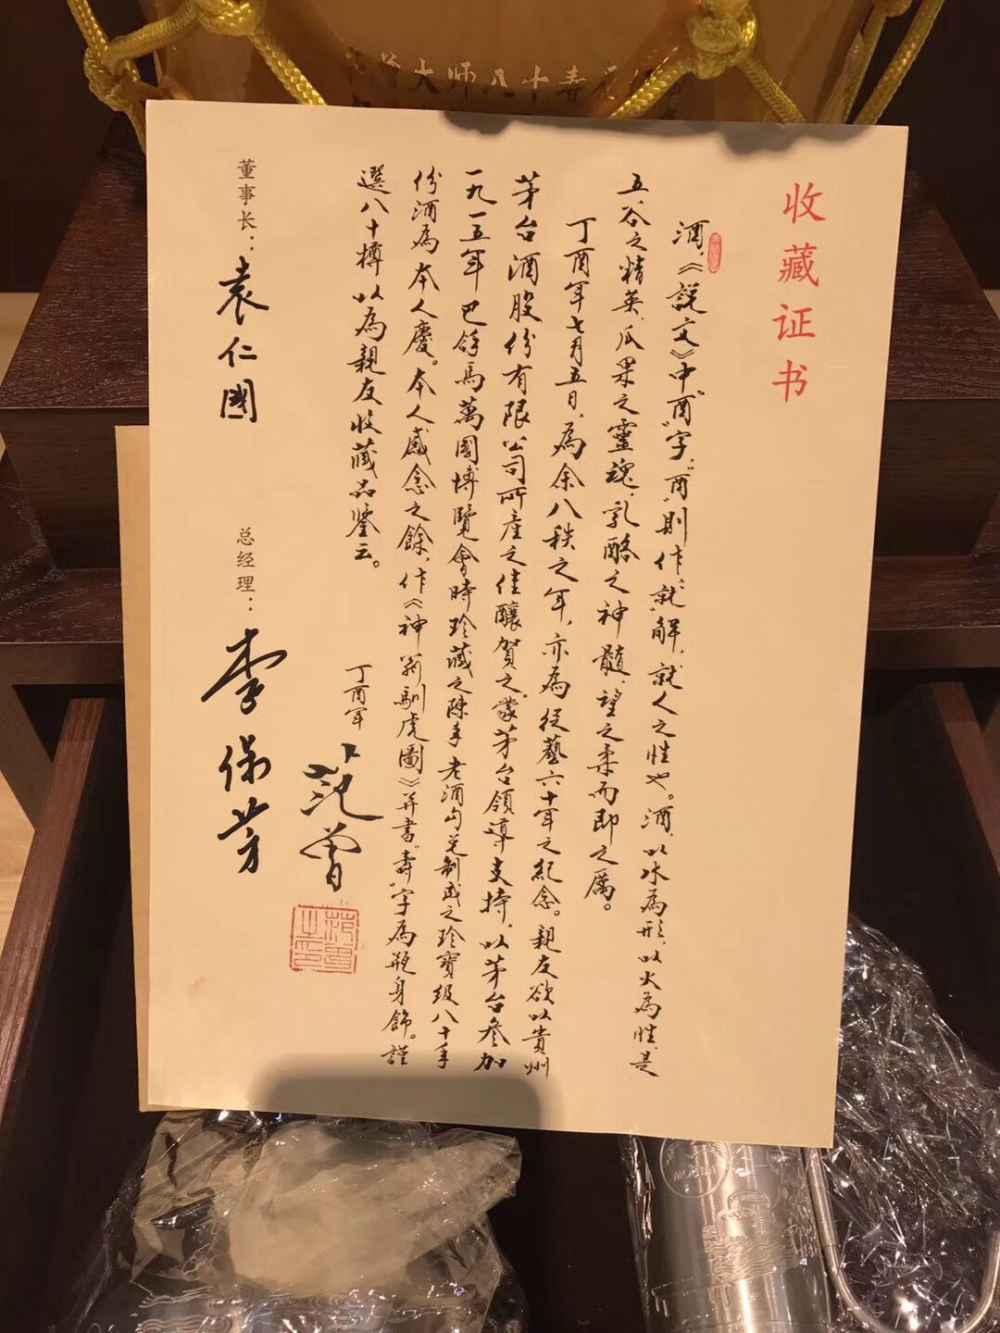 大师八十寿
收藏证书
酒，《說文》中“酉”字，“酉”則作“就”解，就人之性也。酒，以水為形，以火為性，是
五谷之精英，瓜果之靈魂，乳酪之神髓，望之柔而即之厲。
丁酉年七月五日，為余八秩之年，亦為從藝六十年之紀念。親友欲以貴州
茅台酒股份有限公司所產之佳釀賀之，蒙茅台領導支持，以茅台參加
一九一五年巴拿馬萬國博覽會時珍藏之陳年老酒勾兌制成之珍寶級八十年
份酒為本人慶。本人感念之餘，作《神荊馴虎圖》并書“壽”字為瓶身飾。謹
選八十樽以為親友收藏品鑒云。
丁酉年
范曾
范曾之印
董事长：袁仁國
总经理：李保芳